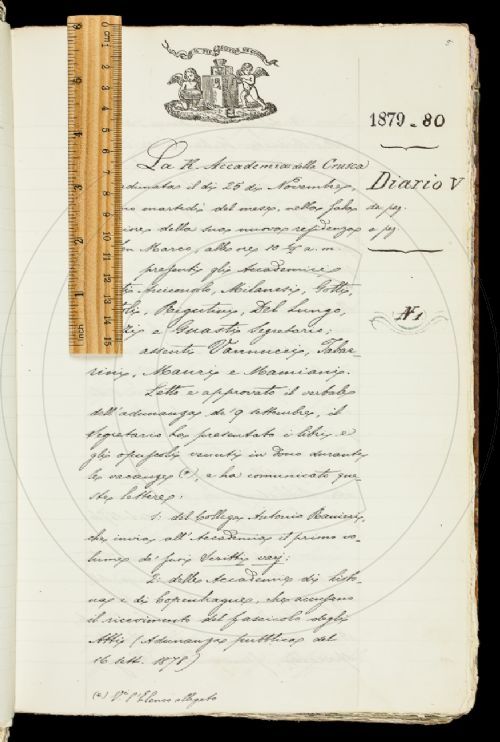 5
IL PIÙ BEL FIOR NE COGLIE
1879-80
Diario V
da pag.
a pag.
N. 1
La R. Accademia della Crusca
adunatasi il dì 25 di Novembre,
martedì del mese, nella sala
della sua nuova residenza
Marco, alle ore 10 ½ a. m.
presenti gli Accademici
Milanesi, Gotti,
Rigutini, Del Lungo,
e Guasti Segretario;
assenti Vannucci, Tabar-
rini, Mauri e Mamiani.
Letto e approvato il verbale
dell'adunanza de' 9 settembre, il
Segretario ha presentato i libri e
gli opuscoli venuti in dono durante
le vacanze (*), e ha comunicato que-
ste lettere:
1.ª del Collega Antonio Ranieri,
che invia all'Accademia il primo vo-
lume de' suoi Scritti varj;
2.ª delle Accademie di Lisbo-
na e di Copenhague, che accusano
il ricevimento del fascicolo degli
Atti (Adunanza pubblica del
16 sett. 1878)
(*) V.º l'Elenco allegato
0 cm 1 2 3 4 5 6 7 8 9 10 11 12 13 14 15
6 5 4 3 2 1 inch